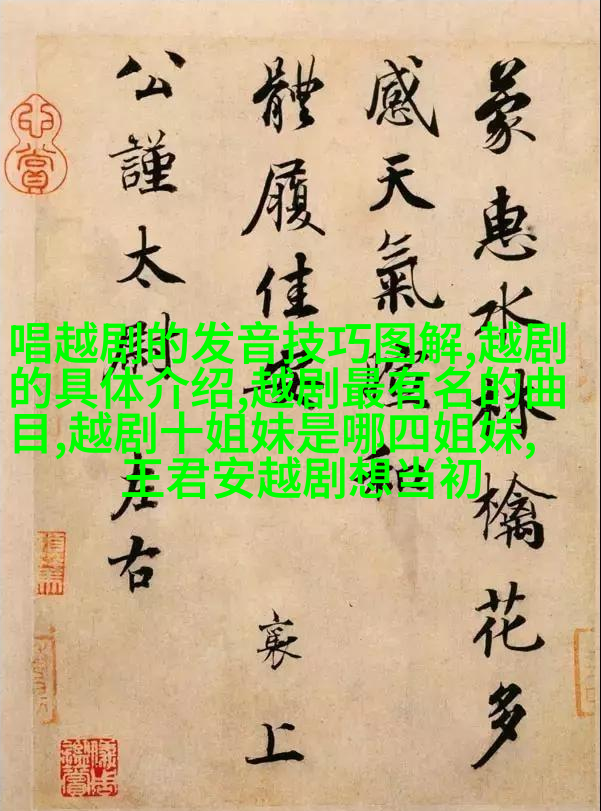 蒙惠水林檎花多
感天氣暄和
體履佳安
襄上
公謹太尉左右
唱越剧的发音技巧图解,越剧
的具体介绍,越剧最有名的曲
目,越剧十姐妹是哪四姐妹,
王君安越剧想当初